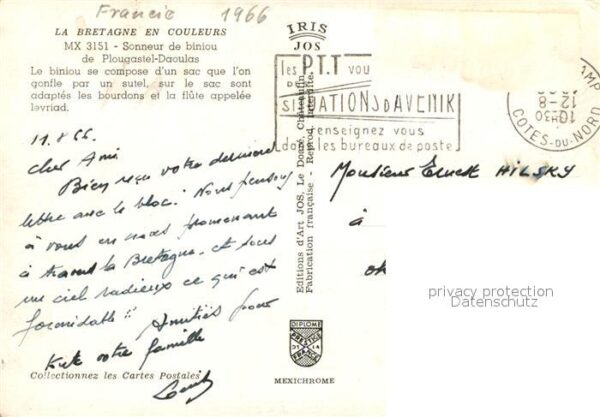 Francie 1966
LA BRETAGNE EN COULEURS
MX 3151 - Sonneur de biniou
de Plougastel-Daoulas
Le biniou se compose d'un sac que l'on
gonfle par un sutel, sur le sac sont
adaptés les bourdons et la flûte appelée
levriad.
11.8.66
Cher Ami
Bien reçu votre dernière
lettre avec le bloc. Nous pensons
à vous en nous promenant
à travers la Bretagne, et sous
un ciel radieux ce qui est
formidable !! Amitiés pour
toute votre famille
Collectionnez les Cartes Postales
IRIS
JOS
Editions d'Art JOS, Le Doaré, Châteaulin
Fabrication française - Reprod. interdite.
DIPLOME
PRESTIGE
DE LA
FRANCE
MEXICHROME
les P.T.T VOU
SITUATIONS D'AVENIR
renseignez vous
dans les bureaux de poste
AMP
10H30
12-8
COTES-DU-NORD
Monsieur Ernest HILSKY
à
privacy protection
Datenschutz